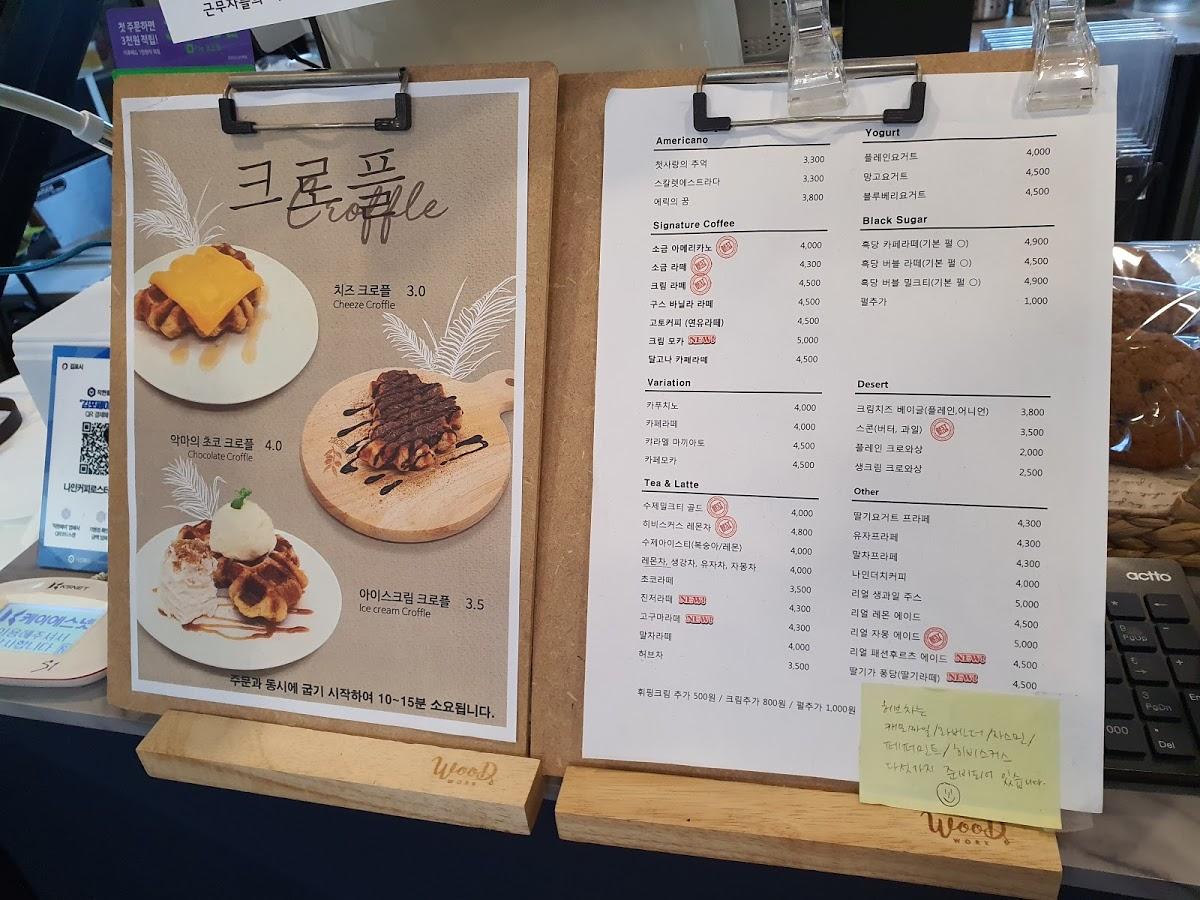 근무자들의
첫 주문하면
3천원 적립!
크로플
Croffle
치즈 크로플 3.0
Cheeze Croffle
악마의 초코 크로플 4.0
Chocolate Croffle
아이스크림 크로플 3.5
Ice cream Croffle
주문과 동시에 굽기 시작하여 10~15분 소요됩니다.
WOOD
WORK
Americano
첫사랑의 추억 3,300
스칼렛에스트라다 3,300
에릭의 꿈 3,800
Signature Coffee
소금 아메리카노 BEST 4,000
소금 라떼 BEST 4,300
크림 라떼 BEST 4,500
구스 바닐라 라떼 4,500
고토커피 (연유라떼) 4,500
크림 모카 NEW! 5,000
달고나 카페라떼 4,500
Variation
카푸치노 4,000
카페라떼 4,000
카라멜 마끼아토 4,500
카페모카 4,500
Tea & Latte
수제밀크티 골드 BEST 4,000
히비스커스 레몬차 BEST 4,800
수제아이스티(복숭아/레몬) 4,000
레몬차, 생강차, 유자차, 자몽차 4,000
초코라떼 3,500
진저라떼 NEW! 4,300
고구마라떼 NEW! 4,300
말차라떼 4,000
허브차 3,500
휘핑크림 추가 500원 / 크림추가 800원 / 펄추가 1,000원
Yogurt
플레인요거트 4,000
망고요거트 4,500
블루베리요거트 4,500
Black Sugar
흑당 카페라떼(기본 펄 ○) 4,900
흑당 버블 라떼(기본 펄 ○) 4,500
흑당 버블 밀크티(기본 펄 ○) 4,900
펄추가 1,000
Desert
크림치즈 베이글(플레인,어니언) 3,800
스콘(버터, 과일) BEST 3,500
플레인 크로와상 2,000
생크림 크로와상 2,500
Other
딸기요거트 프라페 4,300
유자프라페 4,300
말차프라페 4,300
나인더치커피 4,000
리얼 생과일 주스 5,000
리얼 레몬 에이드 4,500
리얼 자몽 에이드 BEST 5,000
리얼 패션후르츠 에이드 NEW! 4,500
딸기가 퐁당(딸기라떼) NEW! 4,500
허브차는
캐모마일/라벤더/자스민/
페퍼민트/히비스커스
다섯가지 준비되어 있습니다.
WOOD
WORK
김포시
QR 결제
나인커피로스터
KSNET
케이에스넷
actto
PgUp
PgDn
000
Del